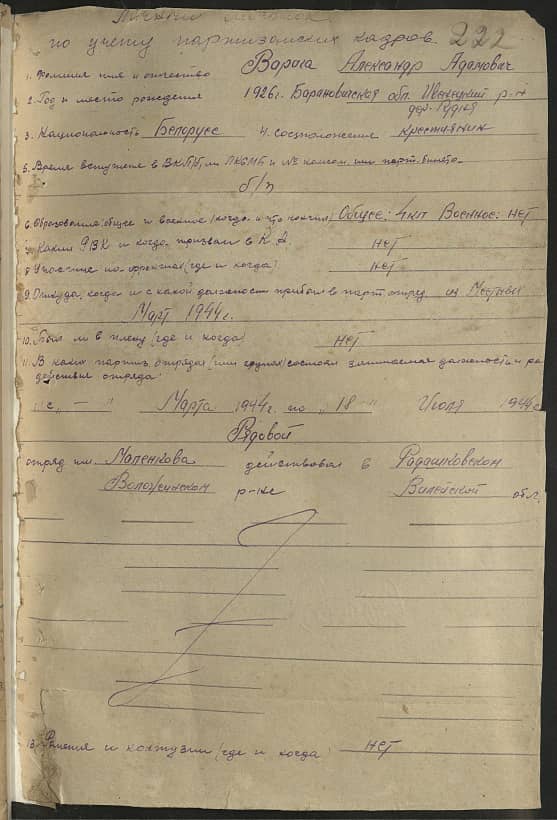 Личный листок
по учету партизанских кадров 222
1. Фамилия имя и отчество Ворога Александр Адамович
2. Год и место рождения 1926г. Барановичская обл. Ивенецкий р-н
дер. Рудня
3. Национальность Белорусс 4. соцположение крестиянин
5. Время вступления в ВКП/б/, или ЛКСМБ и № комсом. или парт. билета.
б/п
6. Образование: общее и военное (когда и что кончил) Общее: 4кл Военное: нет
7. Каким РВК и когда призван в К.А. нет
8. Участие на фронтах (где и когда) нет
9. Откуда, когда и с какой должности прибыл в парт. отряд из Местный
Март 1944г.
10. Был ли в плену (где и когда) нет
11. В каких партиз. отрядах (или группах) состоял занимаемая должность и
действия отряда:
"с" — " Марта 1944г. по "18" Июля 1944г
Рядовой
отряд им. Маленкова действовал в Радашковском
Воложинском р-не Вилейской обл.
13. Ранения и контузии (где и когда) нет